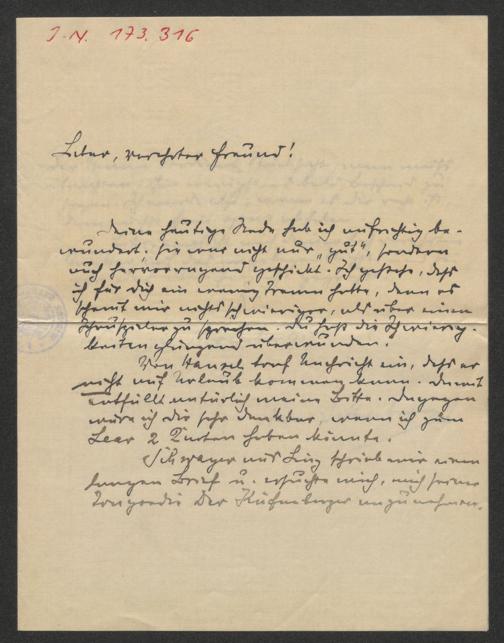 I.N. 173.316
Lieber, verehrter Freund!
Deine heutige Rede hab ich aufrichtig be-
wundert; sie war nicht nur „gut“, sondern
auch hervorragend geschickt. Ich gestehe, daß
ich für Dich ein wenig Trema hatte, denn es
scheint mir nichts schwieriger, als über einen
Schauspieler zu sprechen. Du hast die Schwierig-
keiten glänzend überwunden.
Von Hansel traf Nachricht ein, daß er
nicht auf Urlaub kommen kann. Damit
entfällt natürlich meine Bitte. Dagegen
wäre ich Dir sehr dankbar, wenn ich zum
Lear 2 Karten haben könnte.
aus Linz schrieb mir einen
langen Brief u. ersuchte mich, mich seiner
Tragödie Der anzunehmen.